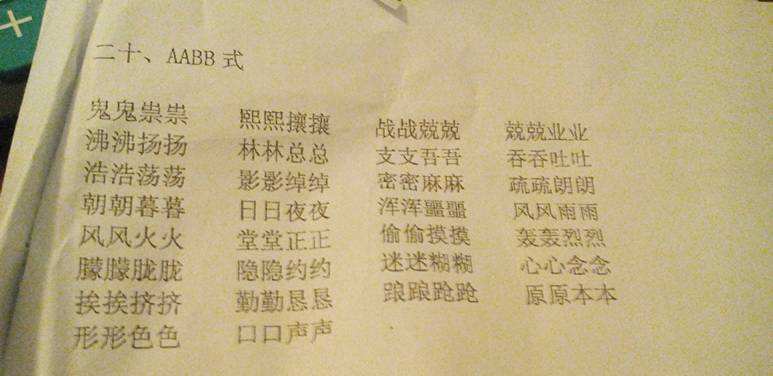 二十、AABB 式
鬼鬼祟祟 熙熙攘攘 战战兢兢 兢兢业业
沸沸扬扬 林林总总 支支吾吾 吞吞吐吐
浩浩荡荡 影影绰绰 密密麻麻 疏疏朗朗
朝朝暮暮 日日夜夜 浑浑噩噩 风风雨雨
风风火火 堂堂正正 偷偷摸摸 轰轰烈烈
朦朦胧胧 隐隐约约 迷迷糊糊 心心念念
挨挨挤挤 勤勤恳恳 踉踉跄跄 原原本本
形形色色 口口声声